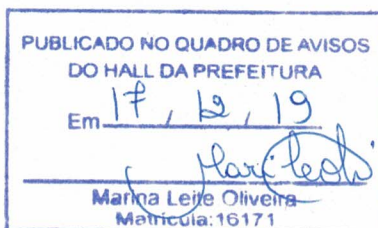 PUBLICADO NO QUADRO DE AVISOS
DO HALL DA PREFEITURA
Em 17 / 12 / 19
Marina Leite Oliveira
Matrícula: 16171